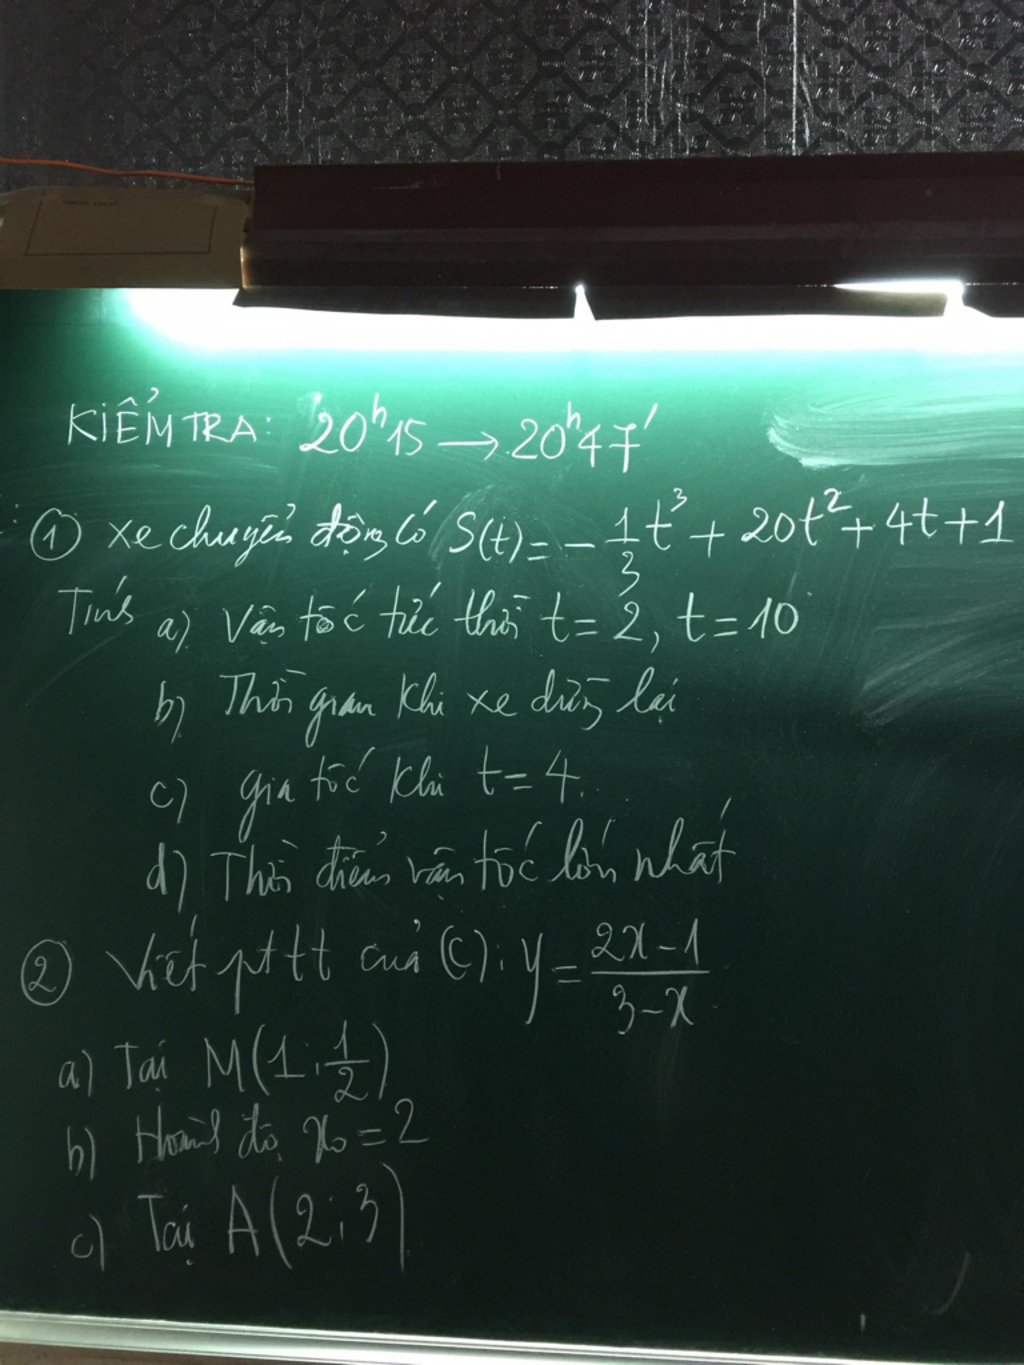 KIỂM TRA: 20h15 → 20h47'
① Xe chuyển động có S(t) = - 1/3 t³ + 20t² + 4t + 1
Tính a) Vận tốc tức thời t = 2, t = 10
b) Thời gian khi xe dừng lại
c) gia tốc khi t = 4.
d) Thời điểm vận tốc lớn nhất
② Viết pttt của (C): y = (2x - 1)/(3 - x)
a) Tại M(1; 1/2)
b) Hoành độ x₀ = 2
c) Tại A(2; 3)